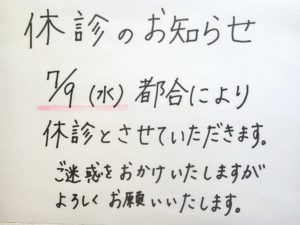 休診のお知らせ
7/9(水)都合により
休診とさせていただきます。
ご迷惑をおかけいたしますが
よろしくお願いいたします。